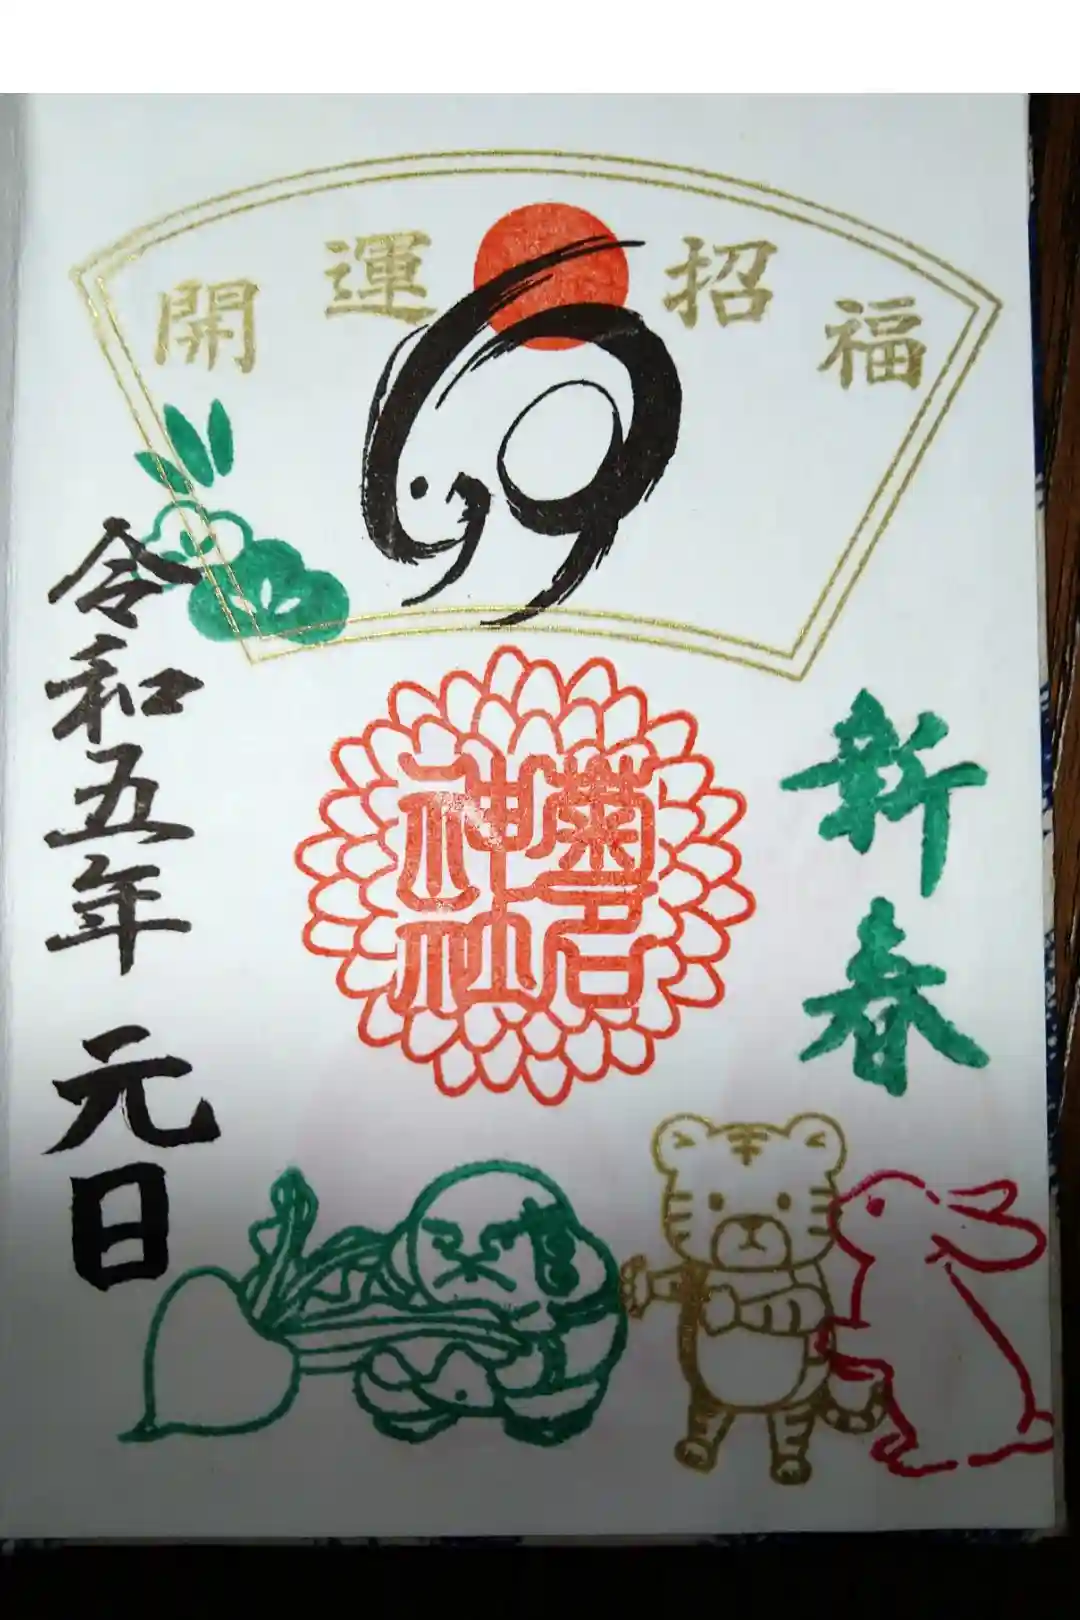 開運招福
新春
菊名
神社
令和五年 元日